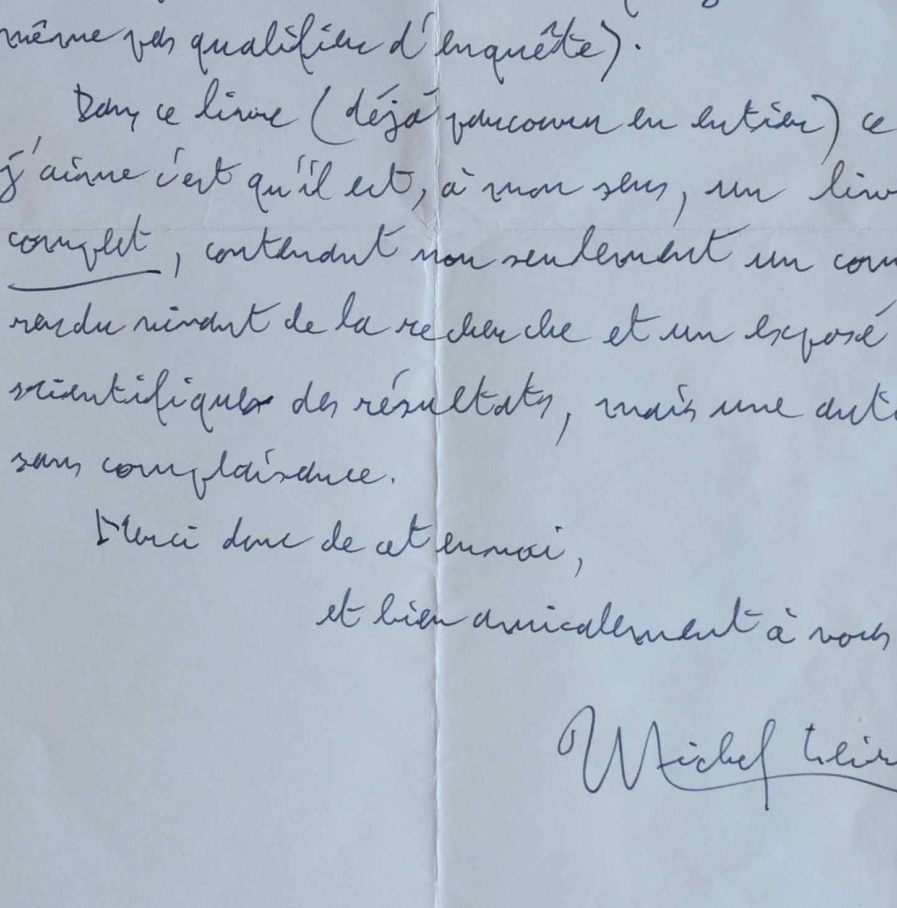 même pas qualifier d'enquête).
Dans ce livre (déjà parcouru en entier) ce
j'aime c'est qu'il est, à mon sens, un livr
complet, contenant non seulement un com
rendu vivant de la recherche et un exposé
scientifique des résultats, mais une auto
sans complaisance.
Merci donc de cet envoi,
et bien amicalement à vous
Michel Leir